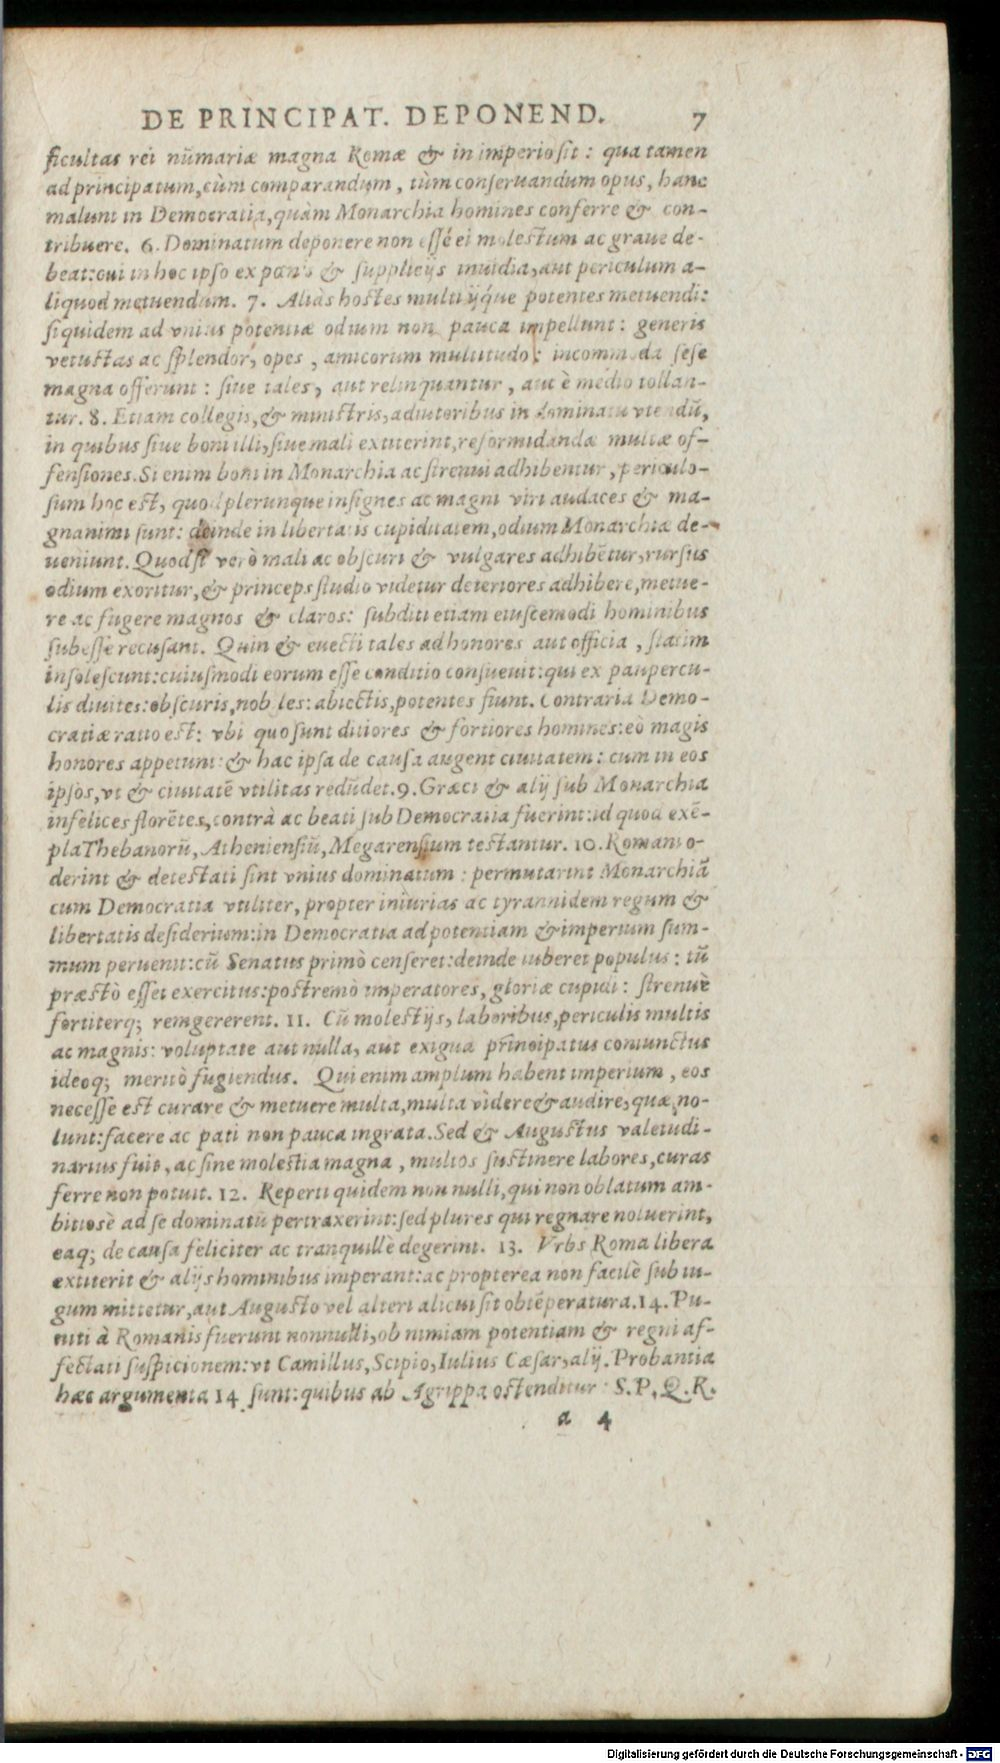 DE PRINCIPAT. DEPONEND. 7
ficultas rei nũmariæ magna Romæ & in imperio sit: qua tamen
ad principatum, cùm comparandum, tùm conseruandum opus, hanc
malunt in Democratia, quàm Monarchia homines conferre & con-
tribuere. 6. Dominatum deponere non essé ei molestum ac graue de-
beat: cui in hoc ipso ex pœnis & supplicijs inuidia, aut periculum a-
liquod metuendum. 7. Aliàs hostes multi ijq́ue potentes metuendi:
siquidem ad vnius potentiæ odium non pauca impellunt: generis
vetustas ac splendor, opes, amicorum multitudo: incommoda sese
magna offerunt: siue tales, aut relinquantur, aut è medio tollan-
tur. 8. Etiam collegis, & ministris, adiutoribus in dominatu vtendũ,
in quibus siue boni illi, siue mali extiterint, reformidandæ multæ of-
fensiones. Si enim boni in Monarchia ac strenui adhibentur, periculo-
sum hoc est, quod plerunque insignes ac magni viri audaces & ma-
gnanimi sunt: deinde in libertatis cupiditatem, odium Monarchiæ de-
ueniunt. Quod si verò mali ac obscuri & vulgares adhibẽtur, rursus
odium exoritur, & princeps studio videtur deteriores adhibere, metue-
re ac fugere magnos & claros: subditi etiam eiuscemodi hominibus
subesse recusant. Quin & euecti tales ad honores aut officia, statim
insolescunt: cuiusmodi eorum esse conditio consueuit: qui ex paupercu-
lis diuites: obscuris, nobiles: abiectis, potentes fiunt. Contraria Demo-
cratiæ ratio est: vbi quo sunt ditiores & fortiores homines: eò magis
honores appetunt: & hac ipsa de causa augent ciuitatem: cum in eos
ipsos, vt & ciuitatẽ vtilitas redũdet. 9. Græci & alij sub Monarchia
infelices florẽtes, contrà ac beati sub Democratia fuerint: id quod exẽ-
pla Thebanorũ, Atheniensiũ, Megarensium testantur. 10. Romani o-
derint & detestati sint vnius dominatum: permutarint Monarchiã
cum Democratia vtiliter, propter iniurias ac tyrannidem regum &
libertatis desiderium: in Democratia ad potentiam & imperium sum-
mum peruenit: cũ Senatus primò censeret: deinde iuberet populus: tũ
præstò esset exercitus: postremò imperatores, gloriæ cupidi: strenuè
fortiterq; rem gererent. 11. Cũ molestijs, laboribus, periculis multis
ac magnis: voluptate aut nulla, aut exigua principatus coniunctus
ideoq; meritò fugiendus. Qui enim amplum habent imperium, eos
necesse est curare & metuere multa, multa videre & audire, quæ no-
lunt: facere ac pati non pauca ingrata. Sed & Augustus valetudi-
narius fuit, ac sine molestia magna, multos sustinere labores, curas
ferre non potuit. 12. Reperti quidem non nulli, qui non oblatum am-
bitiosè ad se dominatũ pertraxerint: sed plures qui regnare noluerint,
eaq; de causa feliciter ac tranquillè degerint. 13. Vrbs Roma libera
extiterit & alijs hominibus imperant: ac propterea non facilè sub iu-
gum mittetur, aut Augusto vel alteri alicui sit obtẽperatura. 14. Pu-
niti à Romanis fuerunt nonnulli, ob nimiam potentiam & regni af-
fectati suspicionem: vt Camillus, Scipio, Iulius Cæsar, alij. Probantia
hæc argumenta 14. sunt: quibus ab Agrippa ostenditur S.P.Q.R.
a 4
Digitalisierung gefördert durch die Deutsche Forschungsgemeinschaft - DFG